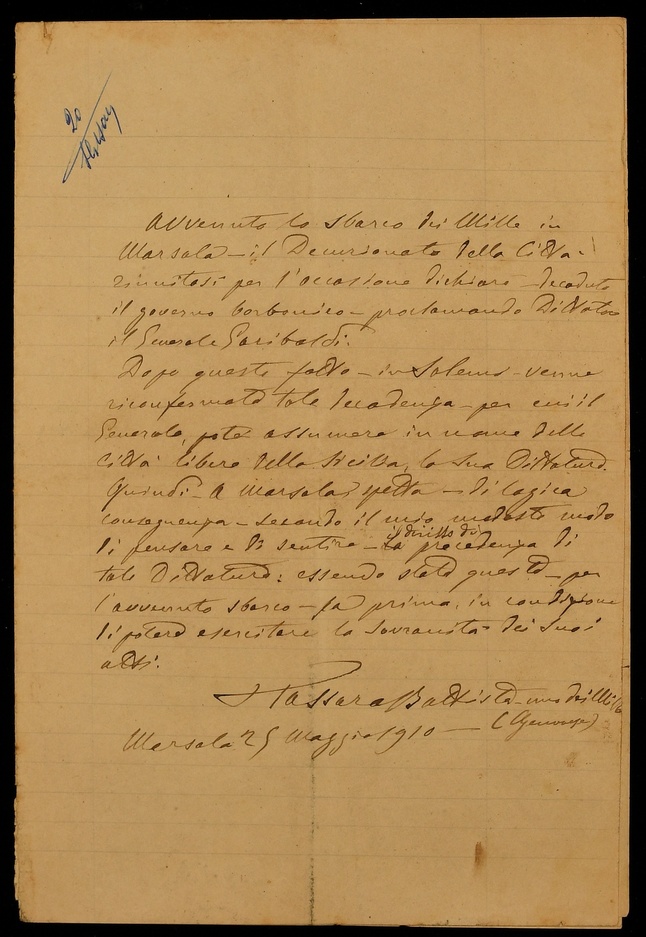 20
Avvenuto lo sbarco dei Mille in
Marsala – il Decurionato della Città –
riunitosi per l'occasione dichiarò – decaduto
il governo borbonico – proclamando Dittatore
il Generale Garibaldi.
Dopo questo fatto – in Salemi – venne
riconfermata tale decadenza – per cui il
Generale, potè assumere in nome delle
Città libere della Sicilia, la sua Dittatura.
Quindi – a Marsala, spetta – di logica
conseguenza – secondo il mio modesto modo
di pensare e di sentire – il diritto di precedenza di
tale Dittatura: essendo stata questa – per
l'avvenuto sbarco – la prima, in condizione
di potere esercitare la sovranità dei suoi
atti.
Battista – uno dei Mille
Marsala 25 Maggio 1910 – (Genovese)